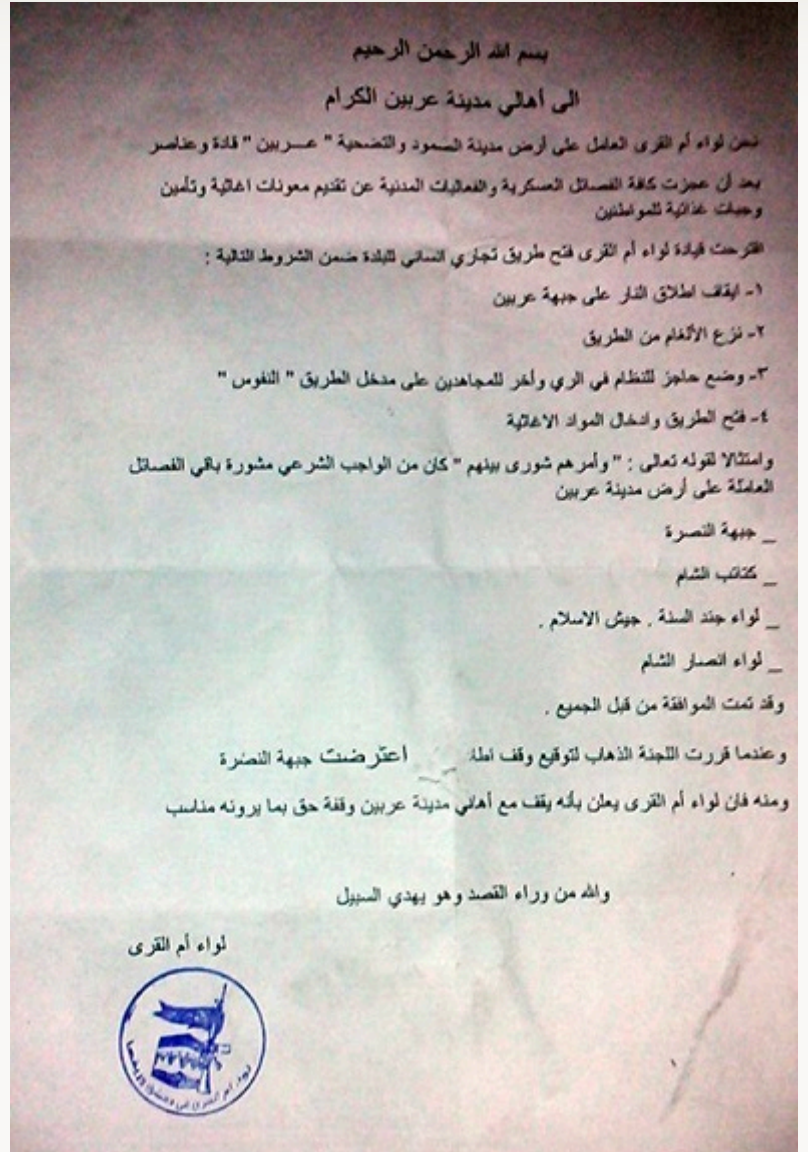 بسم الله الرحمن الرحيم
الى أهالي مدينة عربين الكرام
نحن لواء أم القرى العامل على أرض مدينة الصمود والتضحية " عـــربين " قادة وعناصر
بعد أن عجزت كافة الفصائل العسكرية والفعاليات المدنية عن تقديم معونات اغاثية وتأمين
وجبات غذائية للمواطنين
اقترحت قيادة لواء أم القرى فتح طريق تجاري انساني للبلدة ضمن الشروط التالية :
١- ايقاف اطلاق النار على جبهة عربين
٢- نزع الألغام من الطريق
٣- وضع حاجز للنظام في الري وأخر للمجاهدين على مدخل الطريق " النفوس "
٤- فتح الطريق وادخال المواد الاغاثية
وامتثالا لقوله تعالى : " وأمرهم شورى بينهم " كان من الواجب الشرعي مشورة باقي الفصائل
العاملة على أرض مدينة عربين
_ جبهة النصرة
_ كتائب الشام
_ لواء جند السنة . جيش الاسلام .
_ لواء انصار الشام
وقد تمت الموافقة من قبل الجميع .
وعندما قررت اللجنة الذهاب لتوقيع وقف اعترضت جبهة النصرة
ومنه فان لواء أم القرى يعلن بأنه يقف مع أهالي مدينة عربين وقفة حق بما يرونه مناسب
والله من وراء القصد وهو يهدي السبيل
لواء أم القرى
لواء أم القرى في دمشق